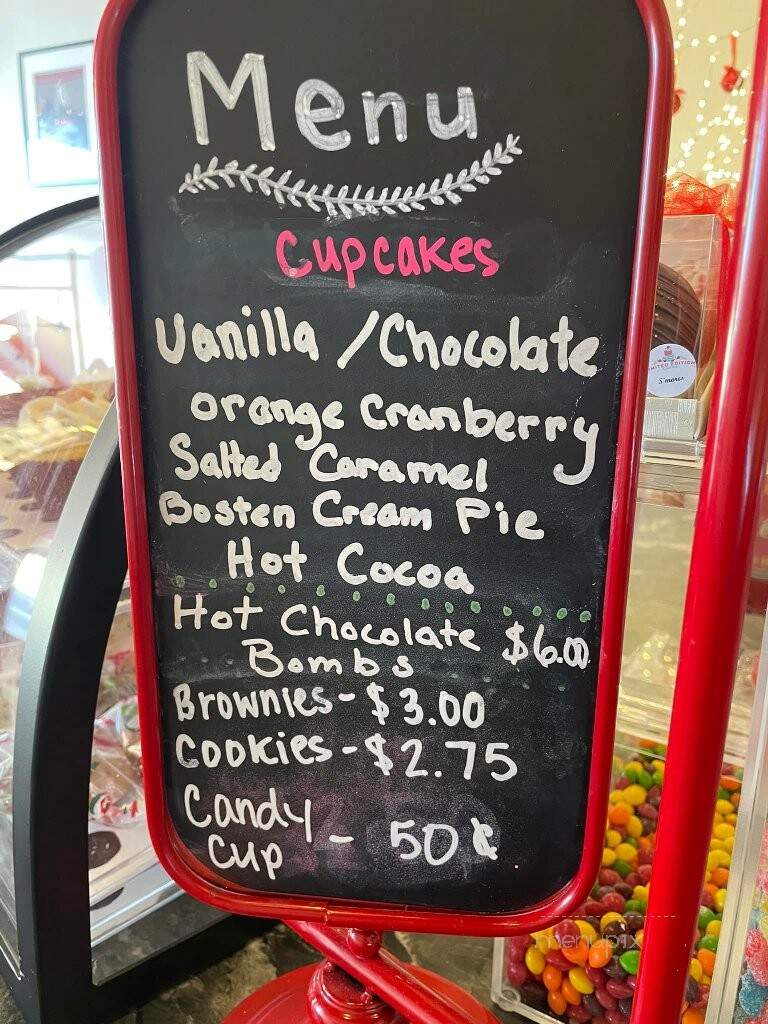 Menu
Cupcakes
Vanilla / Chocolate
orange Cranberry
Salted Caramel
Bosten Cream Pie
Hot Cocoa
Hot Chocolate $6.00
Bombs
Brownies - $3.00
Cookies - $2.75
Candy
Cup - 50¢
LIMITED EDITION
S'mores
menupix